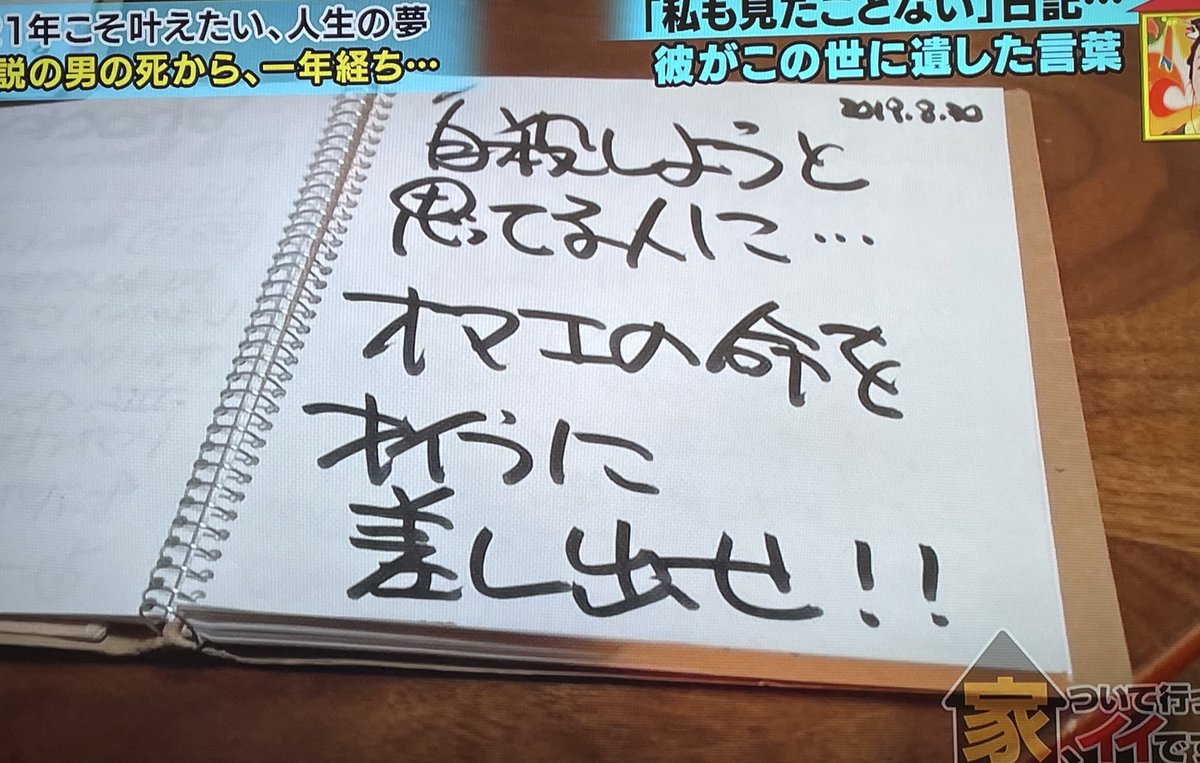 1年こそ叶えたい、人生の夢
説の男の死から、一年経ち…
「私も見たことない」日記…
彼がこの世に遺した言葉
2019.8.20
自殺しようと
思ってる人に…
オマエの命を
オイラに
差し出せ!!
家
ついて行っ
、イイで